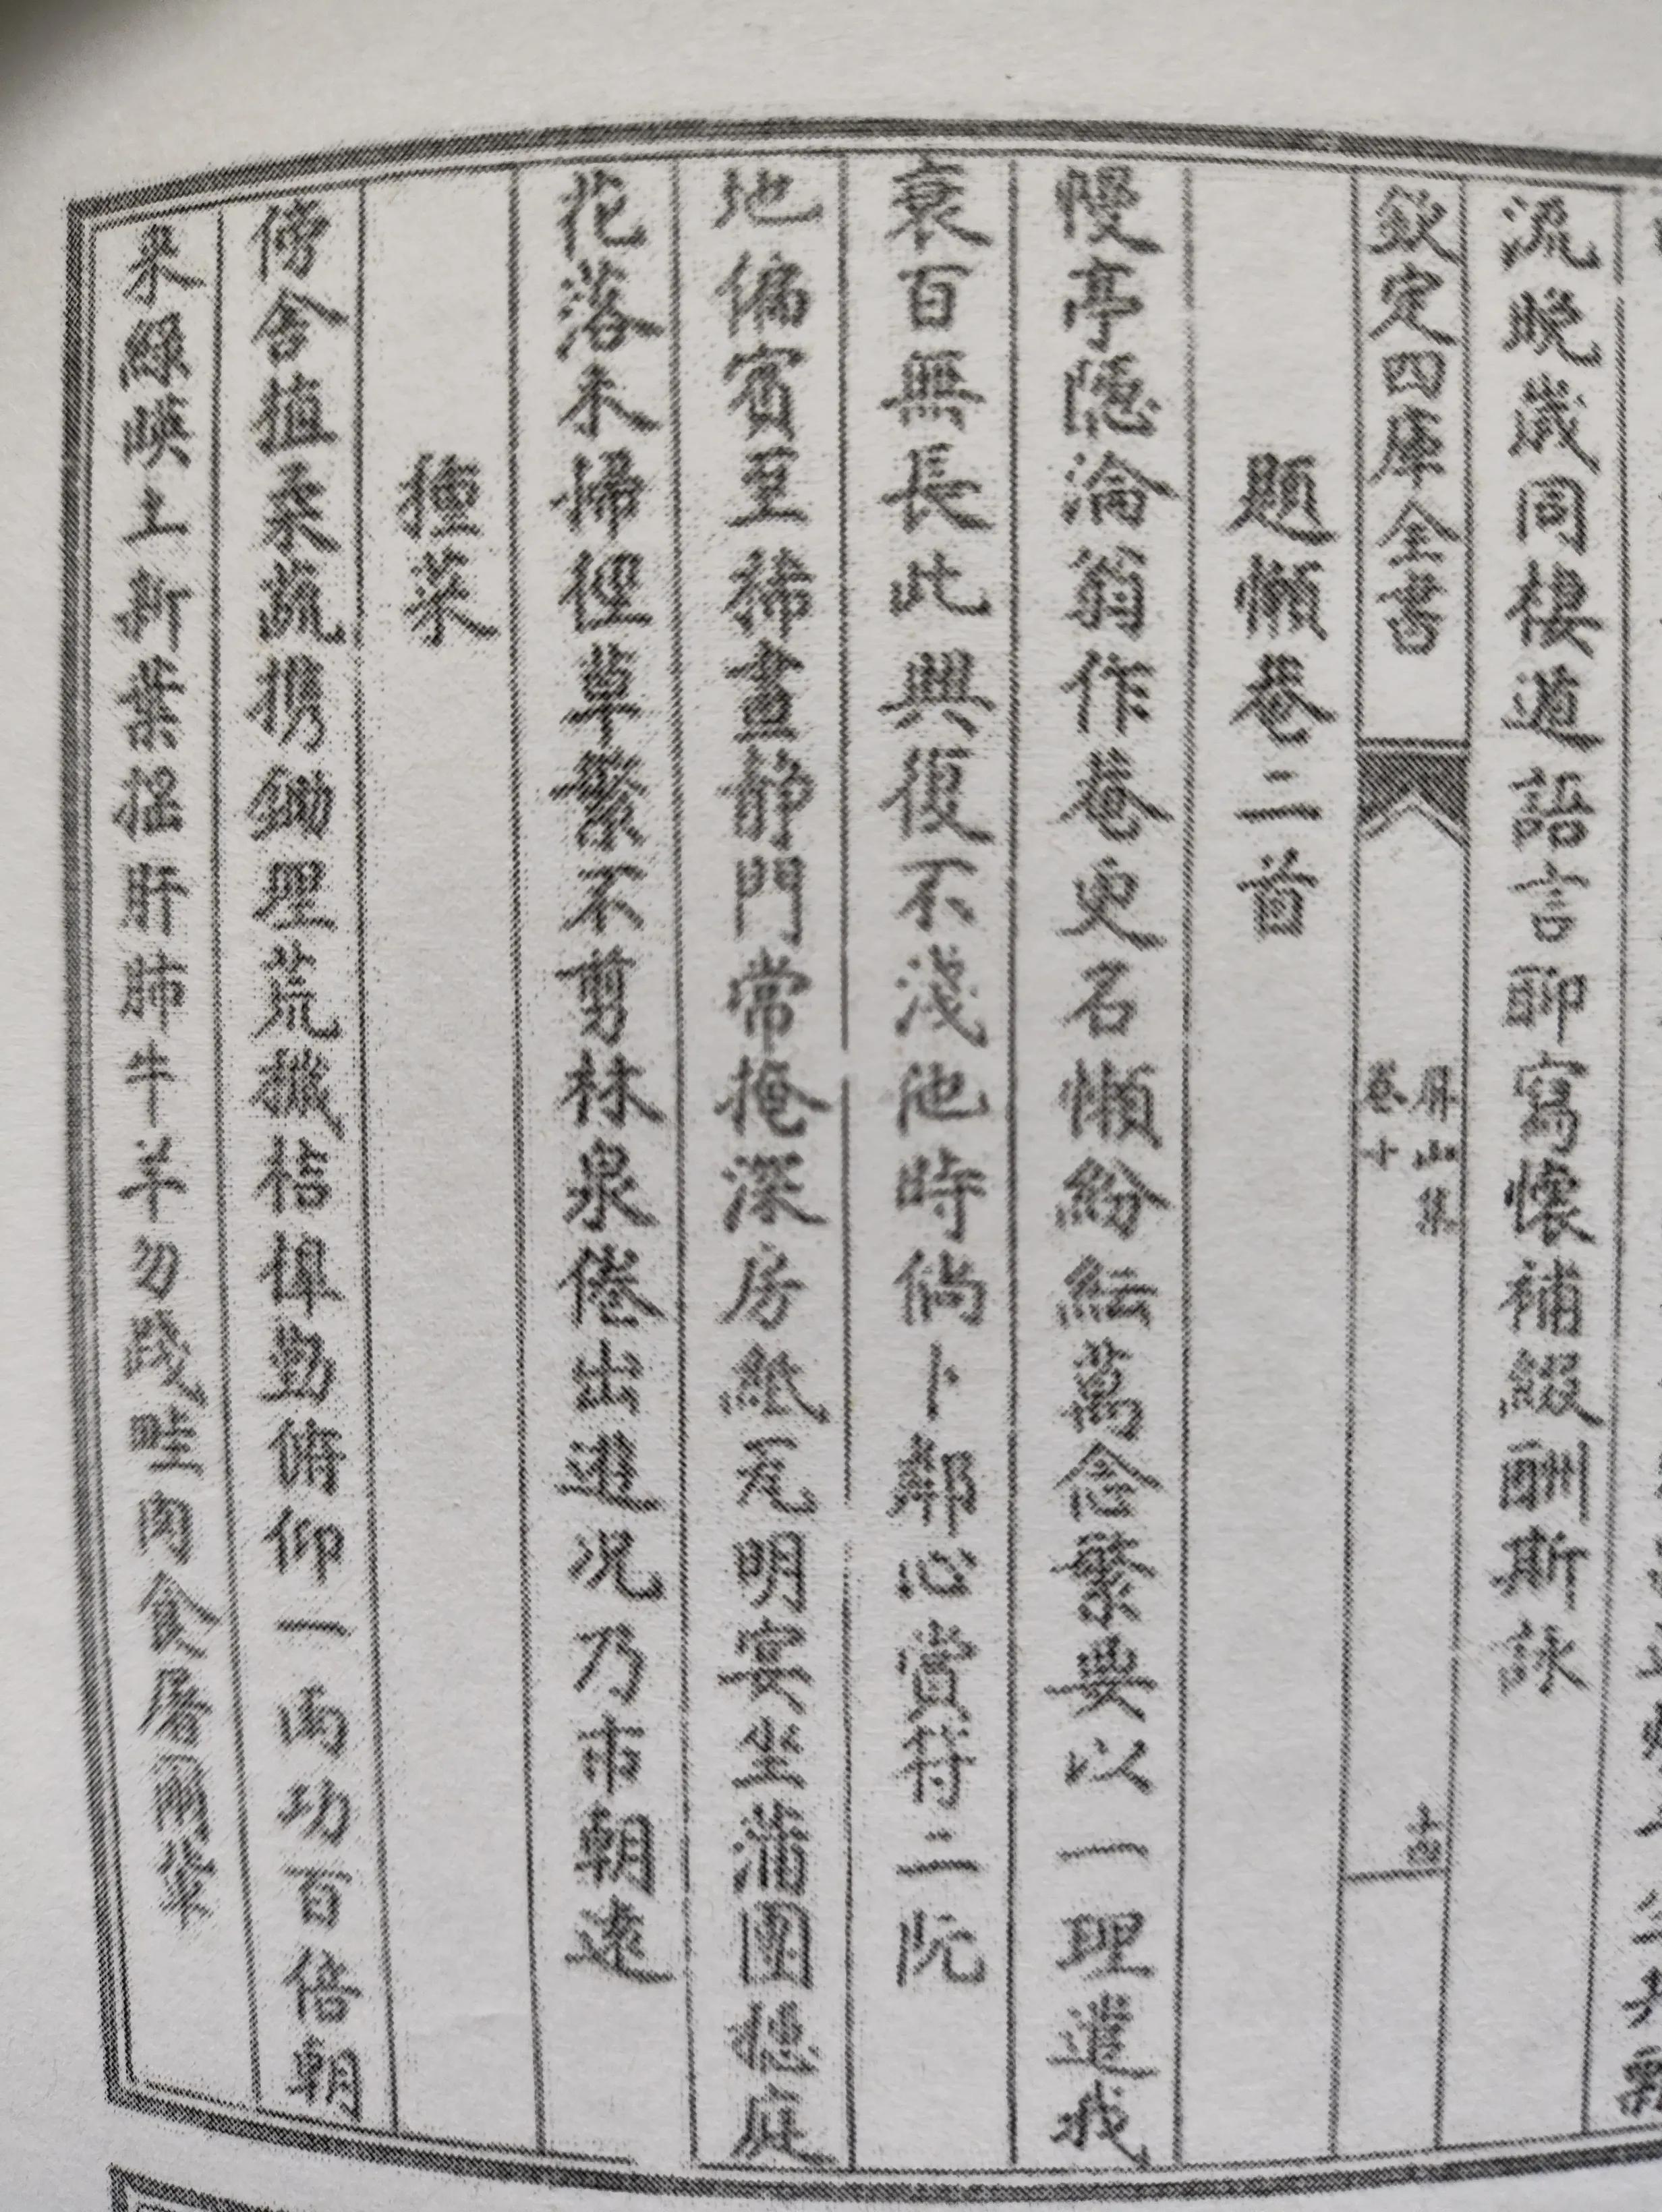 流晚歲同棲遁語言聊寫懷補綴酬斯詠
欽定四庫全書
屏山集
卷十
十四
題懶菴二首
幔亭隱淪翁作菴更名懶紛紜萬念繁要以一理遣我
衰百無長此興復不淺他時倘卜鄰心賞符二阮
地偏賓至稀晝静門常掩深房紙瓦明宴坐蒲團穩庭
花落未掃徑草繁不剪林泉倦出遊况乃市朝遠
種菜
傍舍植柔蔬携鋤理荒穢桔橰勤俯仰一雨功百倍朝
來綠映土新葉掐肝肺牛羊勿踐畦肉食屠爾輩